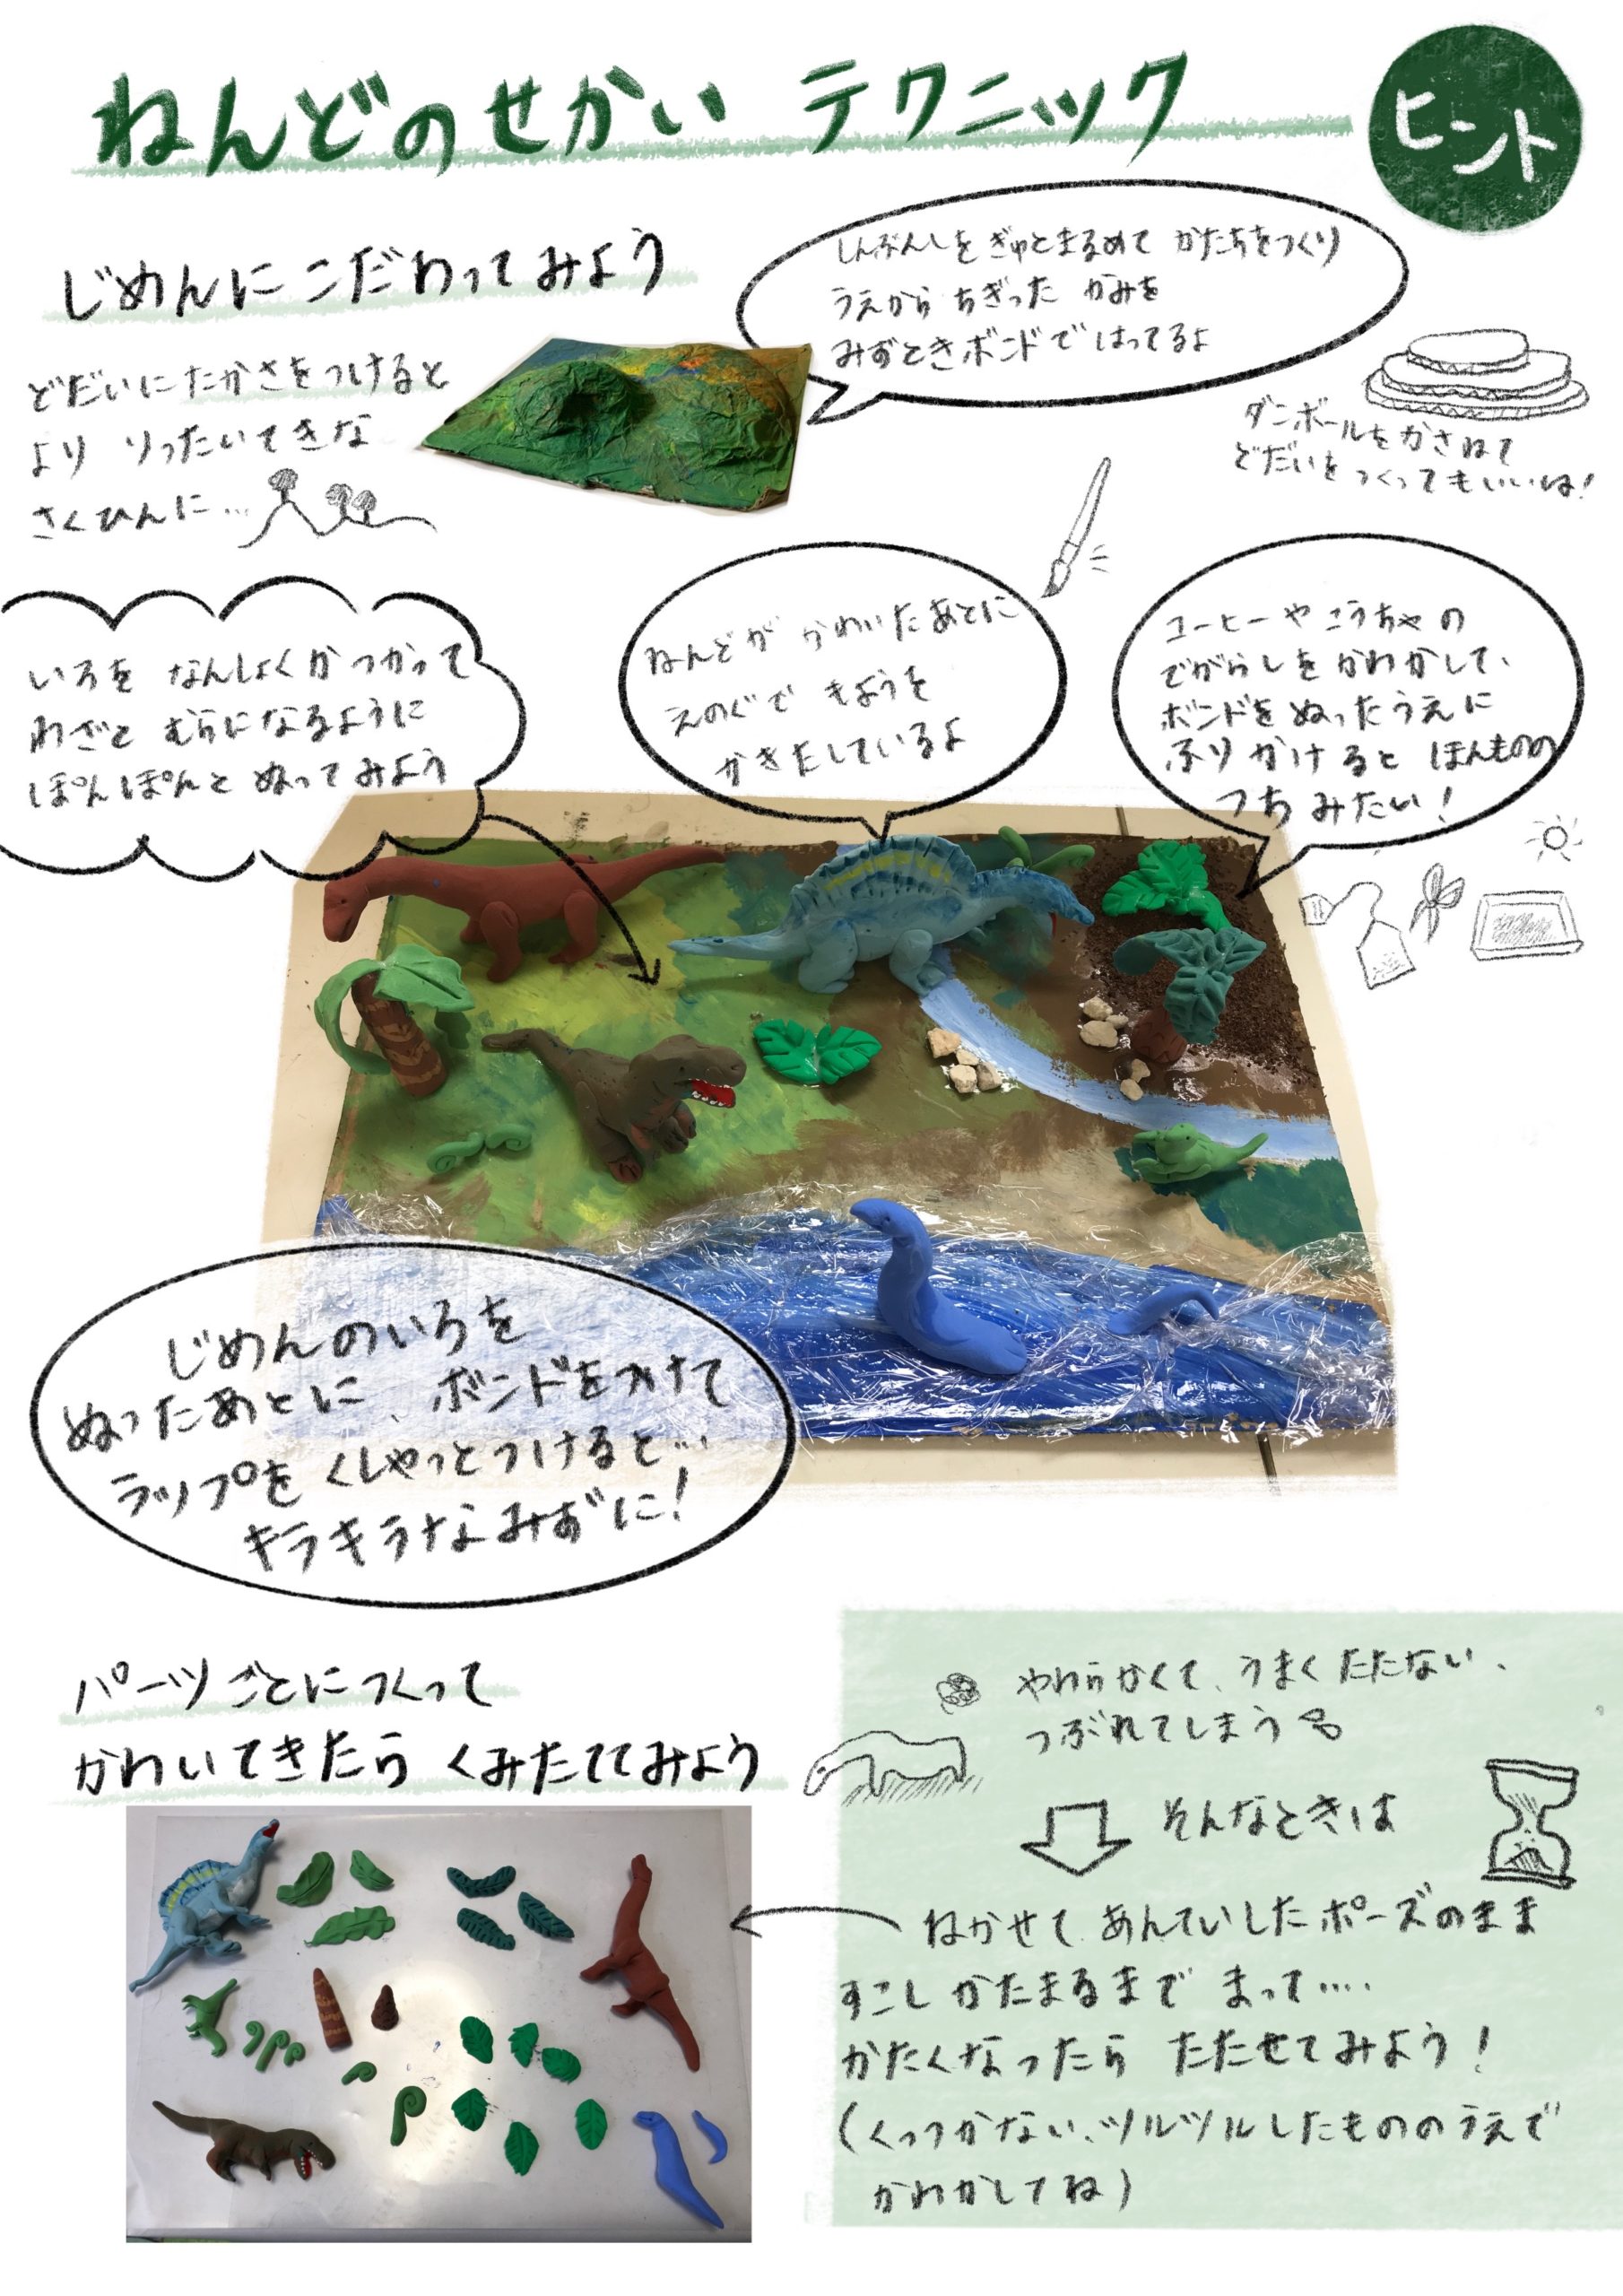 ねんどのせかい テクニック
ヒント
じめんにこだわってみよう
どだいにたかさをつけると
より りったいてきな
さくひんに…
しんぶんしをぎゅとまるめて かたちをつくり
うえから ちぎった かみを
みずときボンドではってるよ
ダンボールをかさねて
どだいをつくってもいいね!
いろを なんしょくかつかって
わざと むらになるように
ぽんぽんと ぬってみよう
ねんどが かわいたあとに
えのぐで もようを
かきたしているよ
コーヒーやこうちゃの
でがらしをかわかして、
ボンドをぬったうえに
ふりかけると ほんものの
つちみたい!
じめんのいろを
ぬったあとに、ボンドをつけて
ラップをくしゃっとつけると…
キラキラなみずに!
パーツごとにつくって
かわいてきたら くみたててみよう
やわらかくて、うまくたたない、
つぶれてしまう
そんなときは
ねかせて、あんていしたポーズのまま
すこし かたまるまで まって….
かたくなったら たたせてみよう!
(くっつかない、ツルツルしたもののうえで
かわかしてね)